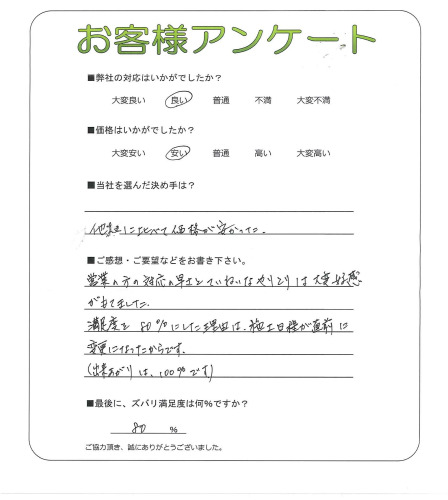 お客様アンケート
■弊社の対応はいかがでしたか?
大変良い 良い 普通 不満 大変不満
■価格はいかがでしたか?
大変安い 安い 普通 高い 大変高い
■当社を選んだ決め手は?
他社に比べて価格が安かった.
■ご感想・ご要望などをお書き下さい。
営業の方の対応の早さとていねいなやりとりは大変好感
がもてました.
満足度を80%にした理由は、施工日程が直前に
変更になったからです.
(出来あがりは、100%です)
■最後に、ズバリ満足度は何%ですか?
80 %
ご協力頂き、誠にありがとうございました。